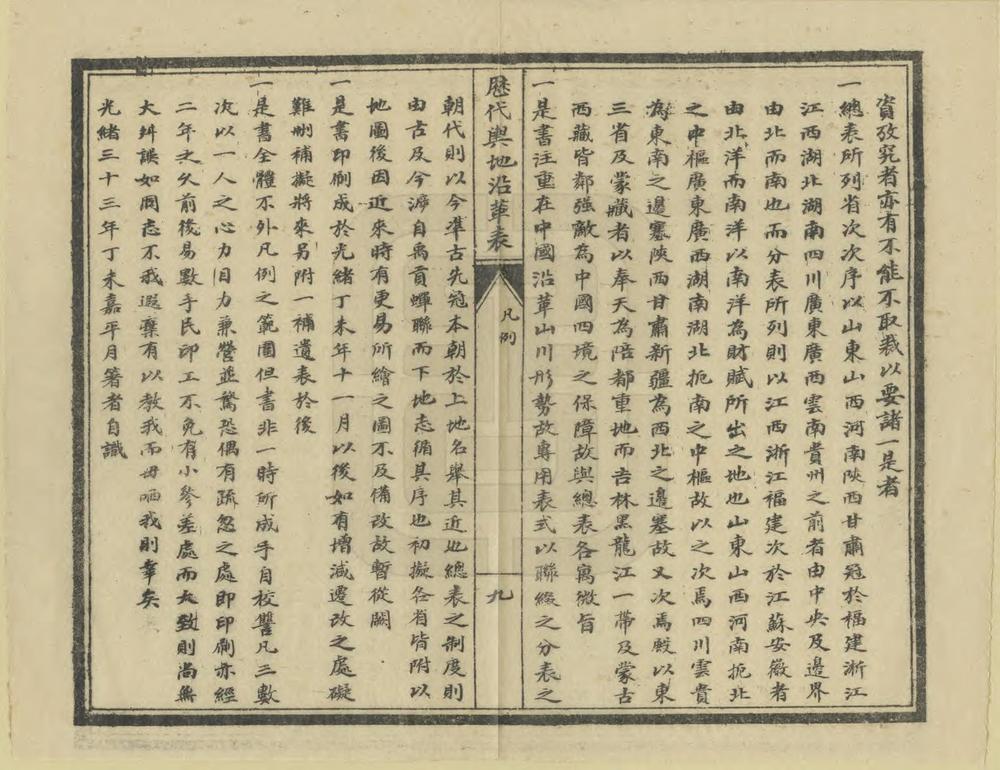 資攷究者亦有不能不取裁以要諸一是者
一總表所列省次次序以山東山西河南陝西甘肅冠於福建浙江
江西湖北湖南四川廣東廣西雲南貴州之前者由中央及邊界
由北而南也而分表所列則以江西浙江福建次於江蘇安徽者
由北洋而南洋以南洋為財賦所出之地也山東山西河南扼北
之中樞廣東廣西湖南湖北扼南之中樞故以之次焉四川雲貴
為東南之邊塞陝西甘肅新疆為西北之邊塞故又次焉殿以東
三省及蒙藏者以奉天為陪都重地而吉林黑龍江一帶及蒙古
西藏皆鄰強敵為中國四境之保障故與總表各寓微旨
一是書注重在中國沿革山川形勢故專用表式以聯綴之分表之
歷代輿地沿革表
凡例
九
朝代則以今準古先冠本朝於上地名舉其近也總表之制度則
由古及今溯自禹貢蟬聯而下地志循其序也初擬各省皆附以
地圖後因近來時有更易所繪之圖不及備改故暫從闕
一是書印刷成於光緒丁未年十一月以後如有增減遷改之處礙
難刪補擬將來另附一補遺表於後
一是書全體不外凡例之範圍但書非一時所成手自校讐凡三數
次以一人之心力目力兼營並騖恐偶有疏忽之處即印刷亦經
二年之久前後易數手民印工不免有小參差處而大致則尚無
大舛誤如同志不我遐棄有以教我而毋哂我則幸矣
光緒三十三年丁未嘉平月箸者自識